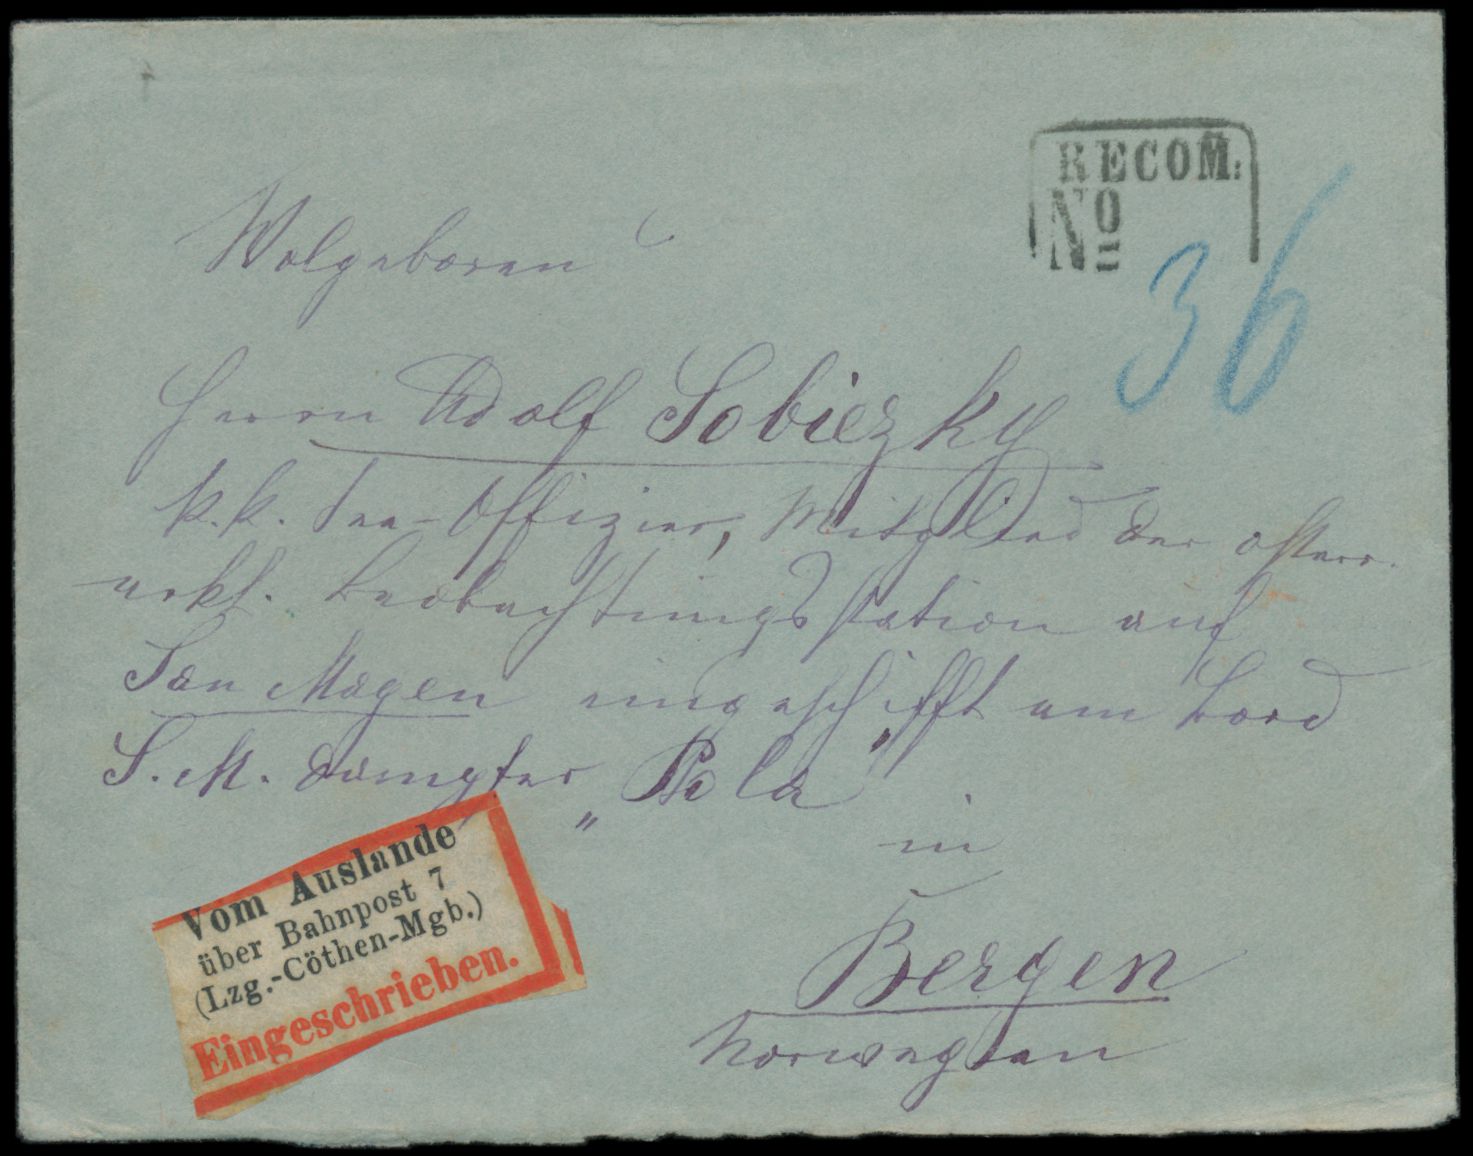 RECOM:
No
36
Wolgeboren
Herrn Adolf Sobiezky
k.k. See-Offizier, Mitglied der österr.
arkt. Beobachtungsstation auf
Jan Mayen eingeschifft am Bord
S. M. Dampfer „Pola"
in
Bergen
Norwegien
Vom Auslande
über Bahnpost 7
(Lzg.-Cöthen-Mgb.)
Eingeschrieben.